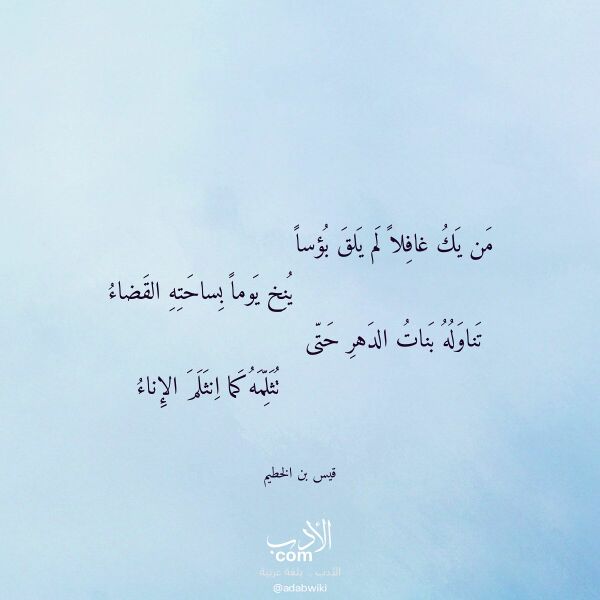 مَن يَكُ غافِلاً لَم يَلقَ بُؤساً
يُنخ يَوماً بِساحَتِهِ القَضاءُ
تَناوَلُهُ بَناتُ الدَهرِ حَتّى
تُثَلِّمَهُ كَما اِنثَلَمَ الإِناءُ
قيس بن الخطيم
الأدب
com
الأدب .. بلغة عربية
@adabwiki